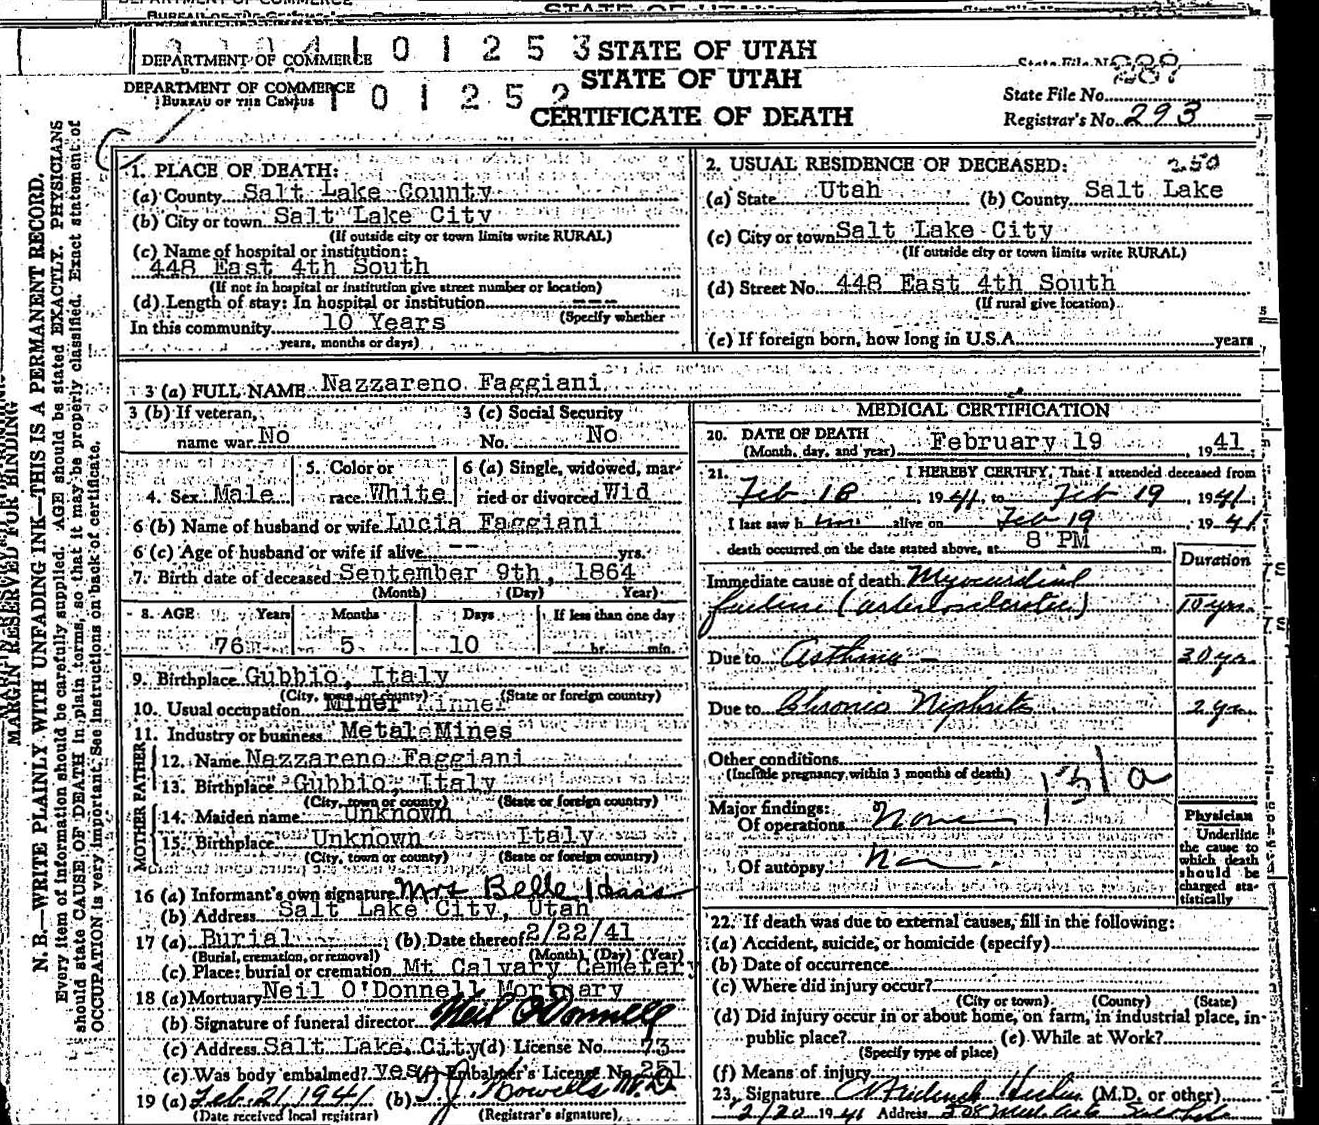 DEPARTMENT OF COMMERCE
STATE OF UTAH
101253 STATE OF UTAH
DEPARTMENT OF COMMERCE
STATE OF UTAH
DEPARTMENT OF COMMERCE
BUREAU OF THE CENSUS
101252
CERTIFICATE OF DEATH
State File No.
State File No.
Registrar's No. 293
MARGIN RESERVED FOR BINDING
N. B.—WRITE PLAINLY WITH UNFADING INK—THIS IS A PERMANENT RECORD.
Every item of information should be carefully supplied. AGE should be stated EXACTLY. PHYSICIANS
should state CAUSE OF DEATH in plain terms, so that it may be properly classified. Exact statement of
OCCUPATION is very important. See instructions on back of certificate.
1. PLACE OF DEATH:
(a) County Salt Lake County
(b) City or town Salt Lake City
(If outside city or town limits write RURAL)
(c) Name of hospital or institution:
448 East 4th South
(If not in hospital or institution give street number or location)
(d) Length of stay: In hospital or institution ---
(Specify whether
In this community 10 Years
years, months or days)
2. USUAL RESIDENCE OF DECEASED: 250
(a) State Utah (b) County Salt Lake
(c) City or town Salt Lake City
(If outside city or town limits write RURAL)
(d) Street No. 448 East 4th South
(If rural give location)
(e) If foreign born, how long in U.S.A. years
3 (a) FULL NAME Nazzareno Faggiani
3 (b) If veteran, 3 (c) Social Security
name war No No. No
4. Sex Male 5. Color or race White 6 (a) Single, widowed, married or divorced Wid
6 (b) Name of husband or wife Lucia Faggiani
6 (c) Age of husband or wife if alive -- yrs.
7. Birth date of deceased September 9th, 1864
(Month) (Day) Year)
8. AGE Years Months Days If less than one day
76 5 10 hr. min.
9. Birthplace Gubbio, Italy
(City, town or county) (State or foreign country)
10. Usual occupation Miner
11. Industry or business Metal Mines
FATHER
12. Name Nazzareno Faggiani
13. Birthplace Gubbio, Italy
(City, town or county) (State or foreign country)
MOTHER
14. Maiden name Unknown
15. Birthplace Unknown Italy
(City, town or county) (State or foreign country)
16 (a) Informant's own signature Mrs Belle
(b) Address Salt Lake City, Utah
17 (a) Burial (b) Date thereof 2/22/41
(Burial, cremation, or removal) (Month) (Day) (Year)
(c) Place: burial or cremation Mt Calvary Cemetery
18 (a) Mortuary Neil O'Donnell Mortuary
(b) Signature of funeral director Neil O'Donnell
(c) Address Salt Lake City (d) License No. 73
(e) Was body embalmed? yes Embalmer's License No. 251
19 (a) Feb. 21, 1941 (b) T. J. Howells M.D.
(Date received local registrar) (Registrar's signature)
MEDICAL CERTIFICATION
20. DATE OF DEATH February 19 1941
(Month, day, and year)
21. I HEREBY CERTIFY, That I attended deceased from
Feb 18, 1941, to Feb 19, 1941;
I last saw him alive on Feb 19, 1941
death occurred on the date stated above, at 8 PM m.
Duration
Immediate cause of death Myocardial
failure (arteriosclerotic) 10 yrs.
Due to Asthma — 30 yr.
Due to Chronic Nephritis 2 yrs
Other conditions
(Include pregnancy within 3 months of death)
131a
Major findings:
Of operations None
Of autopsy
Physician
Underline
the cause to
which death
should be
charged sta-
tistically
22. If death was due to external causes, fill in the following:
(a) Accident, suicide, or homicide (specify)
(b) Date of occurrence
(c) Where did injury occur?
(City or town) (County) (State)
(d) Did injury occur in or about home, on farm, in industrial place, in
public place? (e) While at Work?
(Specify type of place)
(f) Means of injury
23. Signature (M.D. or other)
2/20 1941 Address